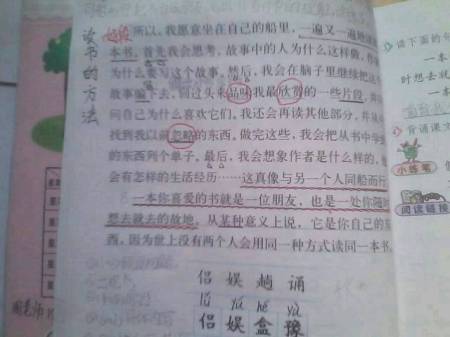 所以,我愿意坐在自己的船里,一遍又一遍地读
本书。首先我会思考,故事中的人为什么这样做,作
为什么要写这个故事。然后,我会在脑子里继续把这个
故事编下去,回过头来品味我最欣赏的一些片段,并
问自己为什么喜欢它们。我还会再读其他部分,并从中
找到我以前忽略的东西。做完这些,我会把从书中学
的东西列个单子。最后,我会想象作者是什么样的,他
会有怎样的生活经历……这真像与另一个人同船而行
一本你喜爱的书就是一位朋友,也是一处你随时
想去就去的故地。从某种意义上说,它是你自己的东
西,因为世上没有两个人会用同一种方式读同一本书。
侣 娱 趟 诵
lǚ yú hé yù
侣 娱 盒 豫
读书的方法
请下面的句
一本
时想去就
背诵课文
小练笔
阅读链接
周老师